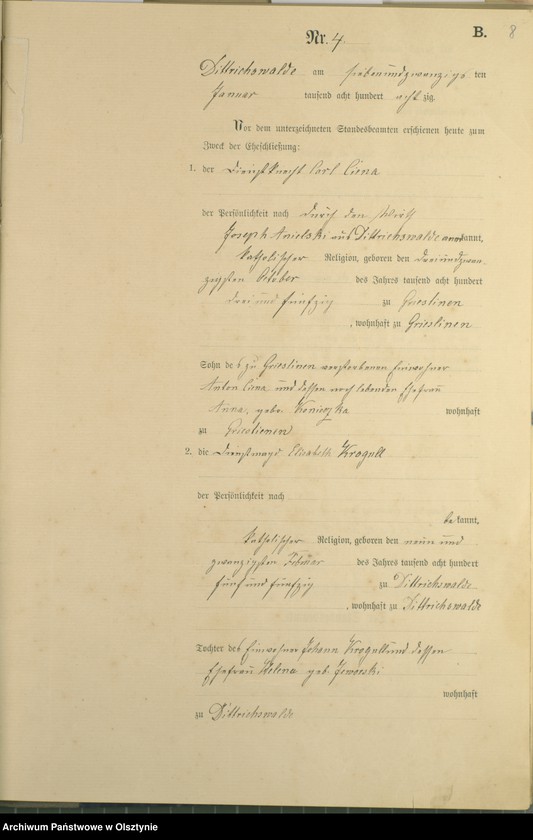 B. 8
Nr. 4.
Dittrichswalde am siebenundzwanzigs ten
Januar tausend acht hundert acht zig.
Vor dem unterzeichneten Standesbeamten erschienen heute zum
Zweck der Eheschließung:
1. der Dienstknecht Carl Ciena
der Persönlichkeit nach durch den Wirth
Joseph Anielski aus Dittrichswalde anerkannt,
katholischer Religion, geboren den dreiundzwan
zigsten October des Jahres tausend acht hundert
drei und fünfzig zu Grieslinen
, wohnhaft zu Grieslinen
Sohn des zu Grieslinen verstorbenen Einwohner
Anton Ciena und dessen noch lebenden Ehefrau
Anna, geb. Konieczka wohnhaft
zu Grieslienen
2. die Dienstmagd Elisabeth Krogull
der Persönlichkeit nach
be kannt,
katholischer Religion, geboren den neun und
zwanzigsten Februar des Jahres tausend acht hundert
fünf und fünfzig zu Dittrichswalde
, wohnhaft zu Dittrichswalde
Tochter des Einwohner Johann Krogull und dessen
Ehefrau Helena geb.
wohnhaft
zu Dittrichswalde
Archiwum Państwowe w Olsztynie